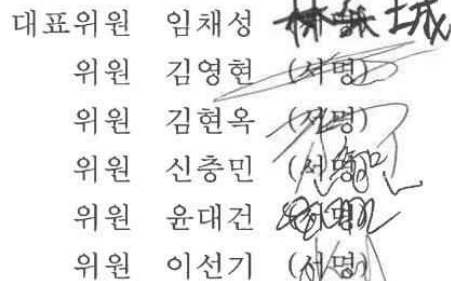 대표위원 임채성 林采城
위원 김영현 (서명)
위원 김현옥 (서명)
위원 신충민 (서명)
위원 윤대건 (서명)
위원 이선기 (서명)